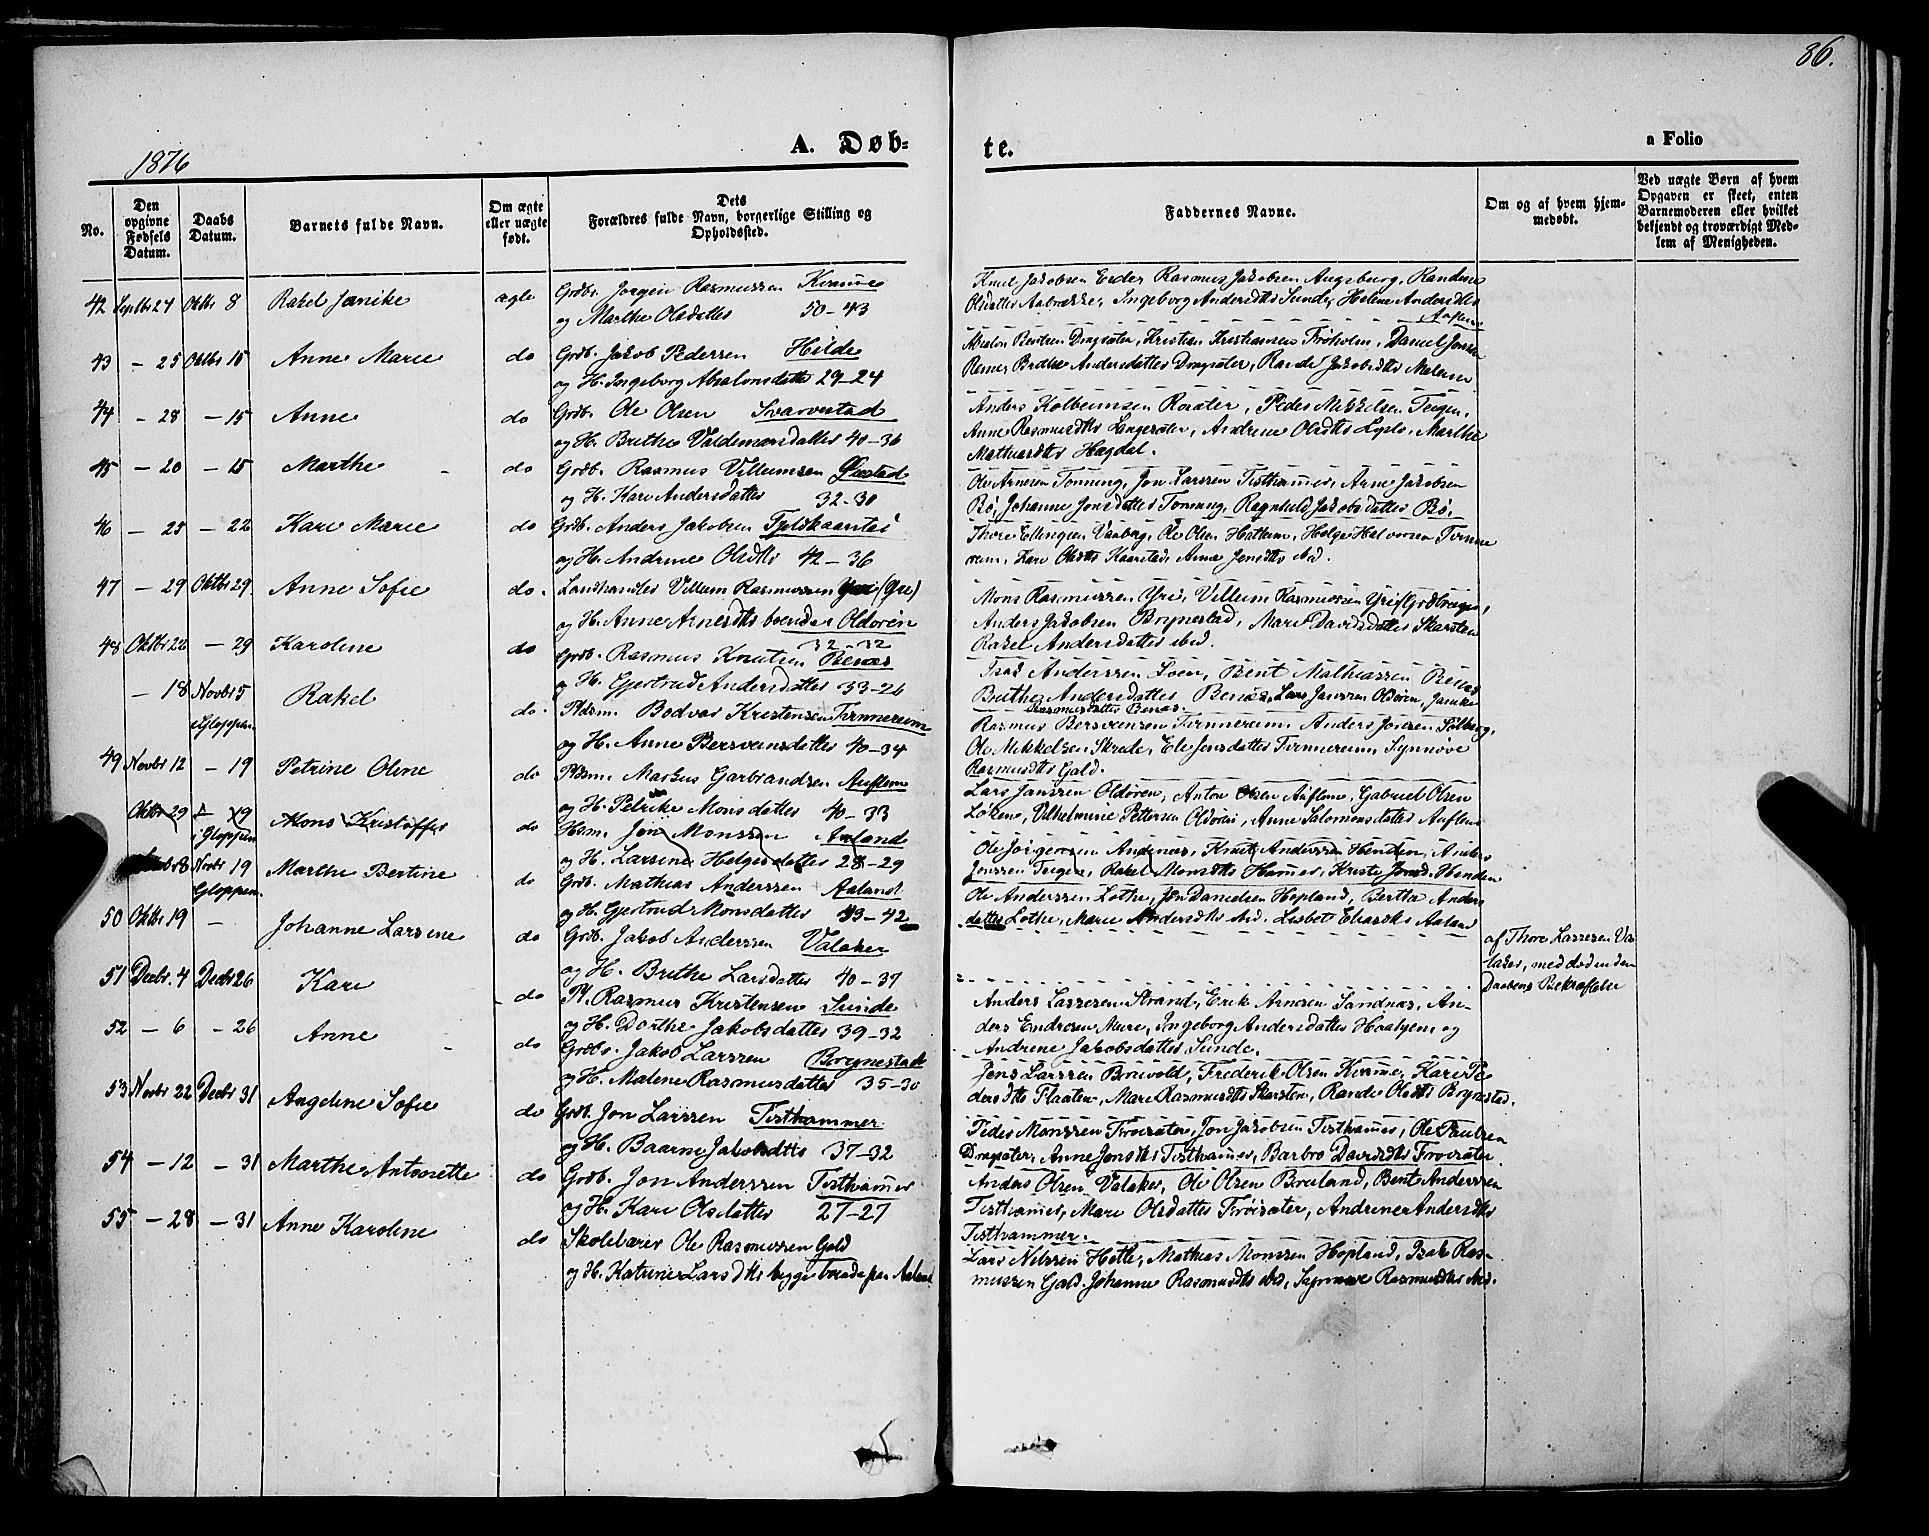 86.
1876
A. Døb-
te.
a Folio
No.
Den opgivne Fødsels Datum.
Daabs Datum.
Barnets fulde Navn.
Om ægte eller uægte født.
Dets Forældres fulde Navn, borgerlige Stilling og Opholdssted.
Faddernes Navne.
Om og af hvem hjemmedøbt.
Ved uægte Børn af hvem Opgaven er skeet, enten Barnemoderen eller hvilket bekjendt og troværdigt Medlem af Menigheden.
42 Septbr 24 Oktbr 8 Rakel Janike ægte Grdb. Jørgen Rasmussen
og Marthe Olsdatter 50-43
Knut Jakobsen Rasmus Jakobsen Augsburg, Randine
Olsdatter Ingeborg Andersdttr Sunde, Helene Andersdtr
Auflem
43 - 25 Oktbr 15 Anne Marie do Grdb. Jakob Pedersen Hilde
og H. Ingeborg Absalonsdatter 29-24
Absalon Bentsen Dragsæter, Kristian Kristiansen Frøholm, Daniel Jonsen
Brithe Andersdatter Dragsæter, Rande Jakobsdtr
44 - 28 - 15 Anne do Grdb. Ole Olsen Svarvestad
og H. Brithe Valdemarsdatter 40-36
Anders Kolbeinsen Peder Mikkelsen Teigen,
Anne Rasmusdtr Langesæter, Andrine Olsdtr Marthe
Mathiasdtr Hagdal.
45 - 20 - 15 Marthe do Grdb. Rasmus Villumsen
og H. Kari Andersdatter 32-30
Ole Arnesen Tonning, Jon Larssen Tisthamer, Arne Jakobsen
Bø, Johanne Jonsdatter Tonning, Ragnhild Jakobsdatter Bø.
46 - 25 - 22 Kari Marie do Grdb. Anders Jakobsen
og H. Andrine Olsdtr 42-36
Thore Ellingsen Vanberg, Ole Olsen Helge Halvorsen Tinne
reim, Kari Olsdtr Kaarstad, Anna Jensdtr ibd.
47 - 29 Oktbr 29 Anne Sofie do. Landhandler Villum Rasmussen Yri (Yre)
og H. Anne Arnesdtr boende i Oldøren
32-32
Mons Rasmussen Yri, Villum Rasmussen Yri
Anders Jakobsen Brynestad, Mari Davidsdatter Skarsten
Rakel Andersdatter ibid.
48 Oktbr 22 - 29 Karoline do Grdb. Rasmus Knutsen Benæs
og H. Gjertrud Andersdatter 33-26
Isak Anderssen Bent Mathiassen Benæs
Brithe Andersdatter Benæs, Lars Janssen Oldøren, Janike
Rasmusdatter Benæs.
- 18 Novbr 5 Rakel do. Pldsm. Bodvar Kristensen Tinnereim
i Gloppen og H. Anne Bersvensdatter 40-34
Rasmus Bersvensen Tinnereim, Anders Jonsen
Ole Mikkelsen Skrede, Eli Jensdatter Tinnereim, Synnøve
Rasmusdtr Gald.
49 Novbr 12 - 19 Petrine Oline do Pldsm. Markus Garbrandsen Auflem
og H. Petrike Monsdatter 40-33
Lars Janssen Oldøren, Anton Olsen Auflem, Gabriel Olsen
Løken, Vilhelmine Pettersen Oldøren, Anne Salomonsdatter Auflem
Oktbr 29 - 19 Mons Kristoffer do Husm. Jon Monssen Aaland
i Gloppen og H. Larsine Helgesdatter 28-29
Ole Jørgensen Andenæs, Knut Anderssen Henden, Anders
Jonssen Teigen, Rakel Monsdtr Hamer, Kristi Jonsd. Henden
8 Novbr 19 Marthe Bertine do Grdb. Mathias Anderssen Aaland
Gloppen og H. Gjertrud Monsdatter 43-42
Ole Anderssen Lothe, Jon Danielsen Hopland, Bertha Anders
datter Lothe, Marie Andersdtr ibd. Lisbet Eliasdtr Aaland
50 Oktbr 19 - Johanne Larsine do Grdb. Jakob Anderssen Valaker
og H. Brithe Larsdatter 40-37
af Thore Lassesen Va
laker, med død inden
Daabens Bekræftelse
51 Decbr. 4 Decbr 26 Kari do Pl. Rasmus Kristensen Sunde
og H. Dorthe Jakobsdatter 39-32
Anders Lassesen Strand, Erik Arnesen Sandnæs, An-
ders Endresen Mure, Ingeborg Andersdatter Haahjem og
Andrine Jakobsdatter Sunde.
52 - 6 - 26 Anne do Grdbr. Jakob Larssen Brynestad
og H. Malene Rasmusdatter 35-30
Jens Larssen Bruvold, Frederik Olsen Kari Pe
dersdtr Flaaten, Mari Rasmusdtr Skarsten, Rande Olsdtr Brynestad.
53 Novbr 22 Decbr 31 Angeline Sofie do Grdb. Jon Larssen Tisthammer
og H. Baarne Jakobsdtr 37-32
Peder Monssen Frøisæter, Jon Jakobsen Tisthamer, Ole Paulsen
Dragsæter, Anne Jonsdtr Tisthamer, Barbro Davidsdtr Frøisæter
54 - 12 - 31 Marthe Antonette do Grdb. Jon Anderssen Tisthamer
og H. Kari Olsdatter 27-27
Anders Olsen Valaker, Ole Olsen Breiland, Bent Anderssen
Tisthamer, Mari Olsdatter Frøisæter, Andrine Andersdtr
Tisthammer.
55 - 28 - 31 Anne Karoline do Skolelærer Ole Rasmussen Gald
og H. Katrine Larsdtr begge boende paa Aaland
Lars Nilssen Hetle, Mathias Monssen Hopland, Isak Ras-
mussen Gald, Johanne Rasmusdtr ibd, Synnøve Rasmusdtr ibd.